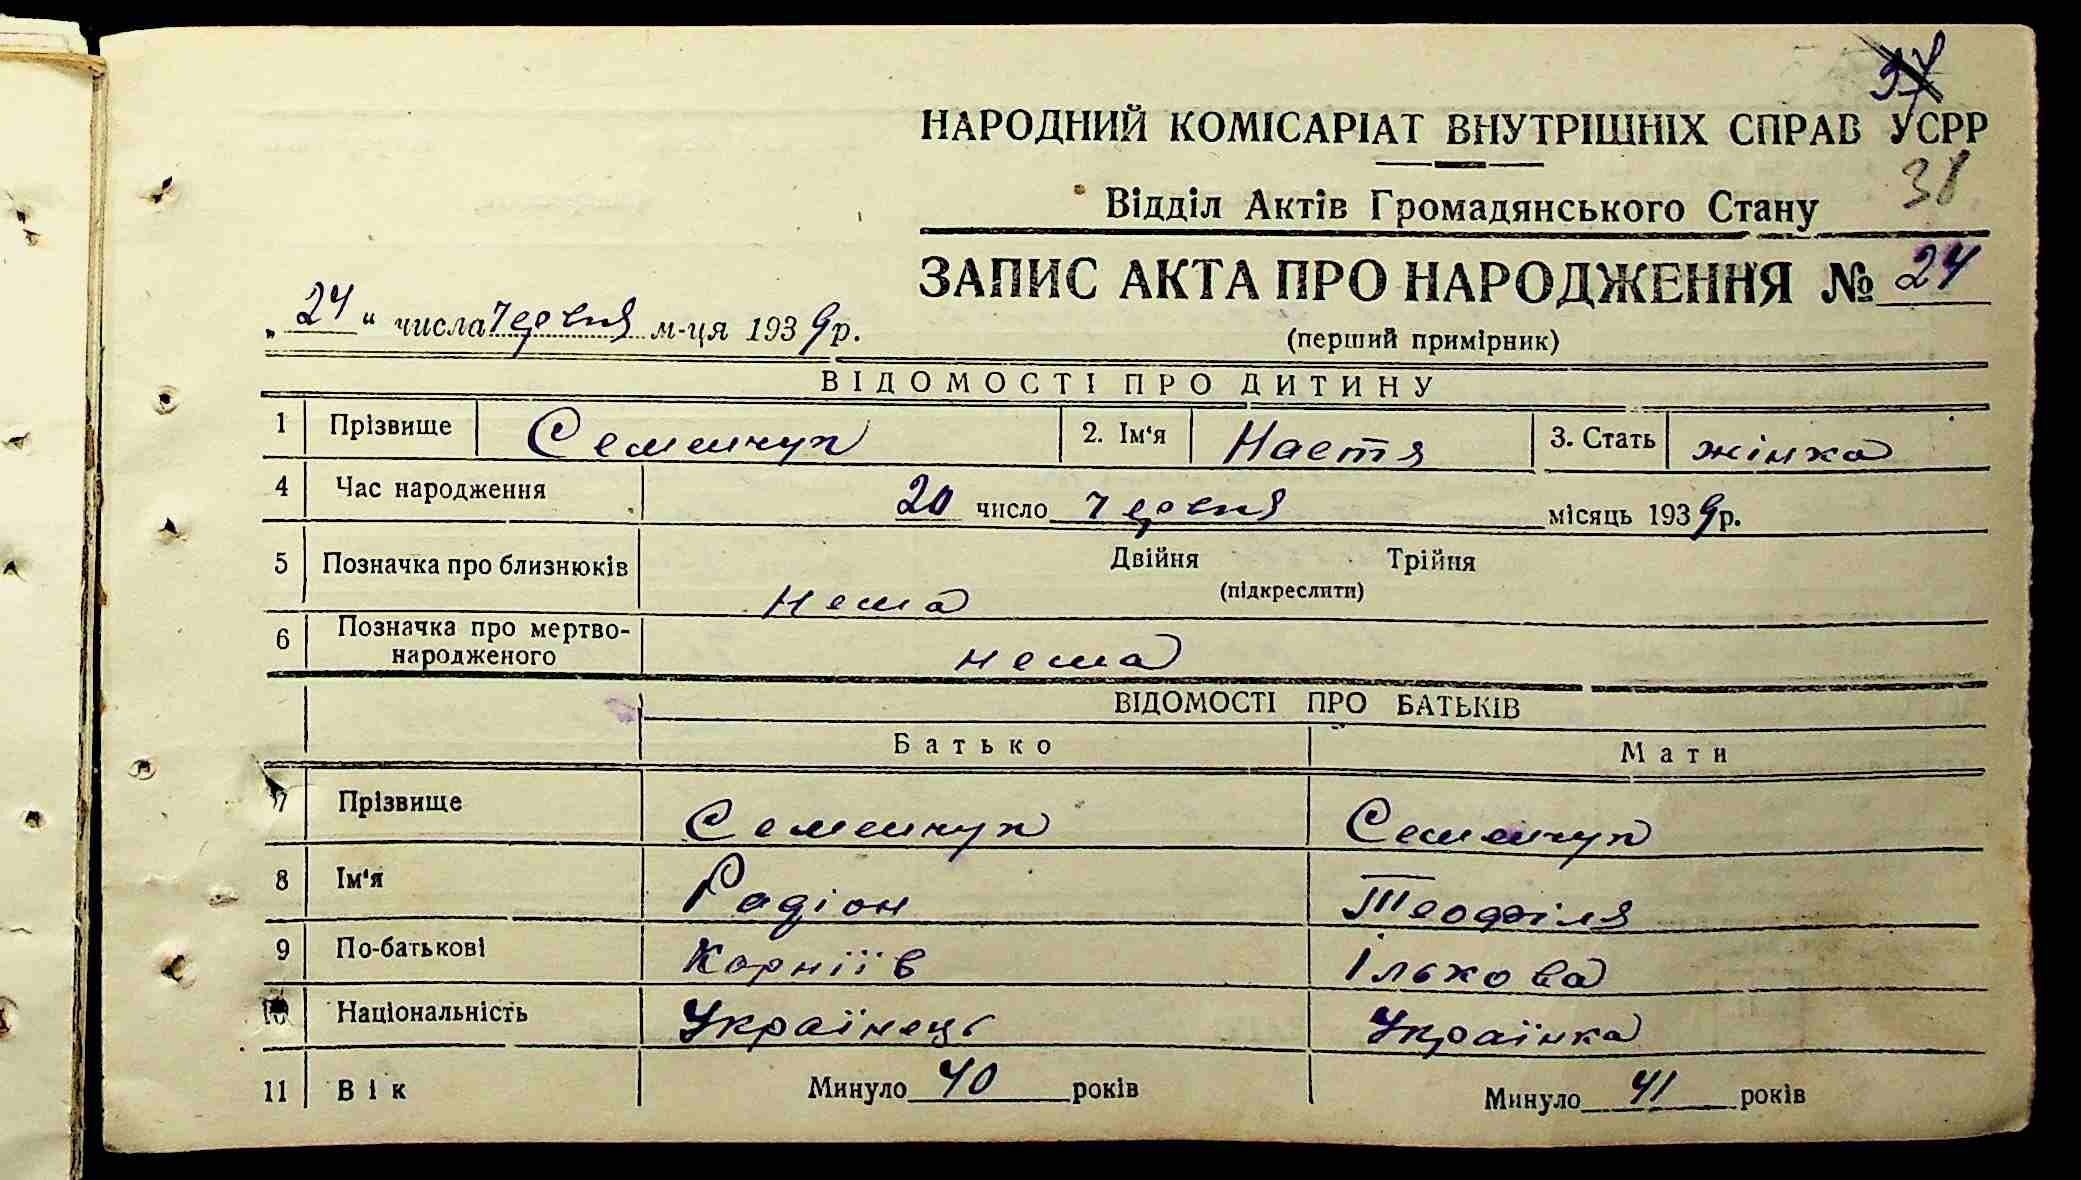 НАРОДНИЙ КОМІСАРІАТ ВНУТРІШНІХ СПРАВ УСРР
31
Відділ Актів Громадянського Стану
ЗАПИС АКТА ПРО НАРОДЖЕННЯ № 24
„24“ числа червня м-ця 1939 р.
(перший примірник)
ВІДОМОСТІ ПРО ДИТИНУ
1 Прізвище Семенчук 2. Ім'я Настя 3. Стать жінка
4 Час народження 20 число червня місяць 1939 р.
5 Позначка про близнюків Двійня Трійня
(підкреслити)
нема
6 Позначка про мертво-
народженого нема
ВІДОМОСТІ ПРО БАТЬКІВ
Батько Мати
7 Прізвище Семенчук Семенчук
8 Ім'я Радіон Теофіля
9 По-батькові Корніїв Ількова
10 Національність Українець Українка
11 Вік Минуло 40 років Минуло 41 років